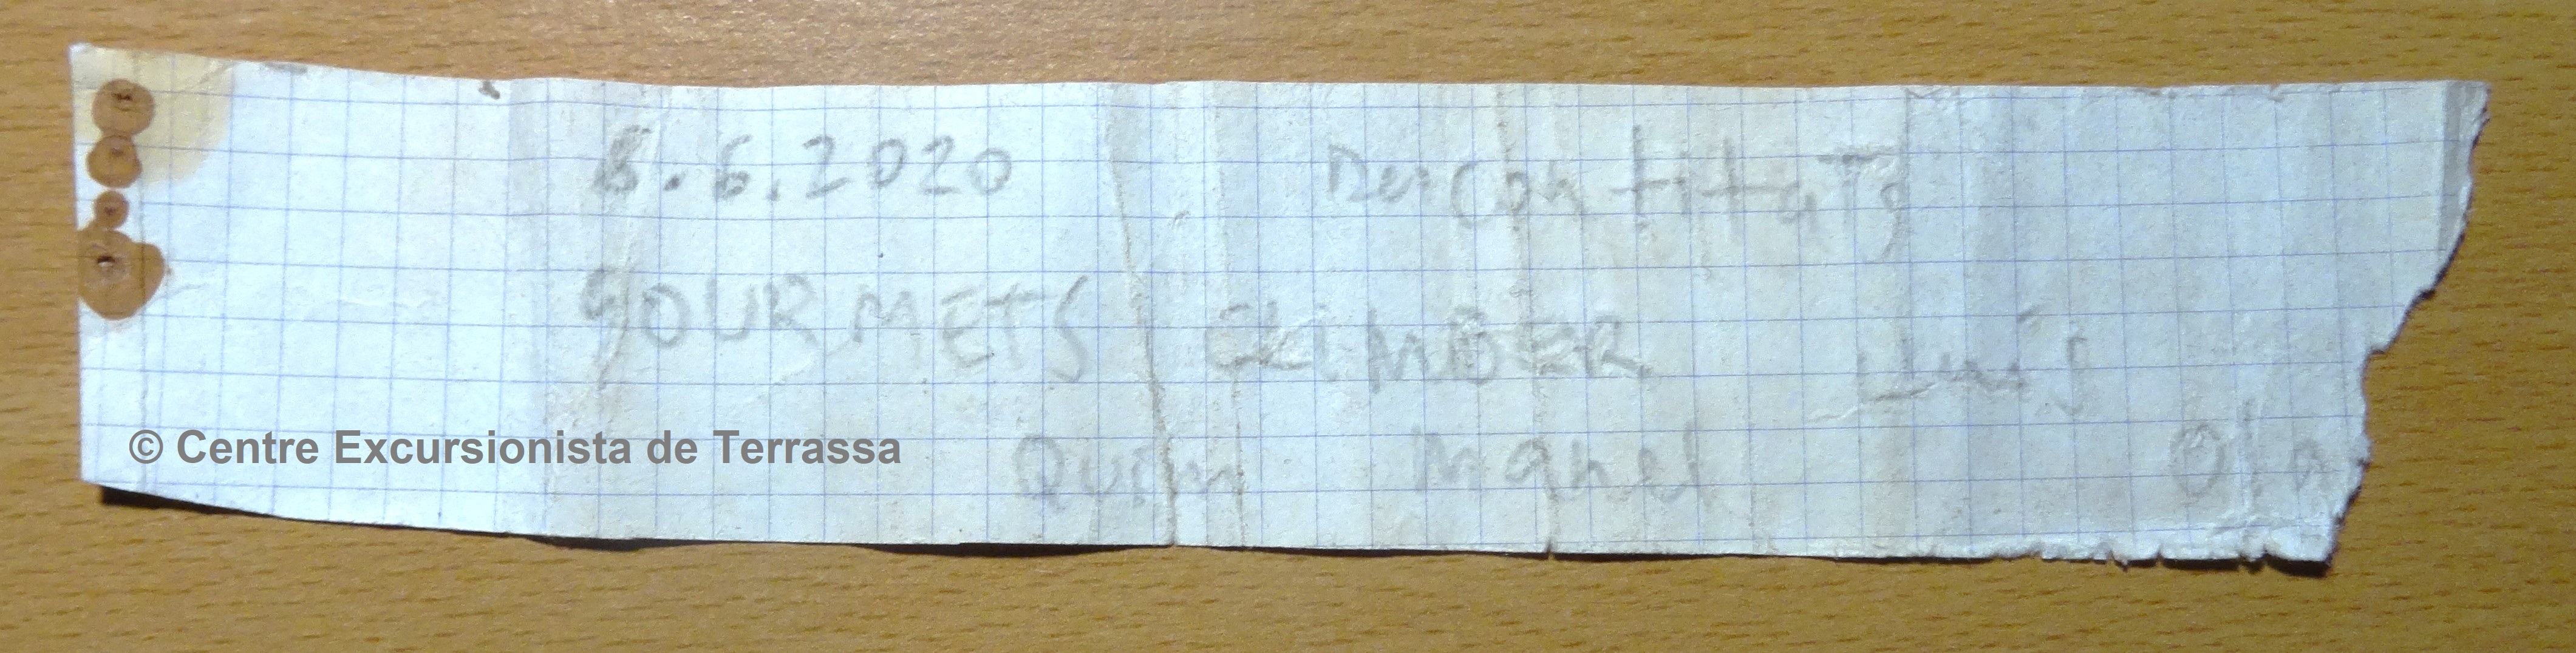 8.6.2020 Desconfitats
GOURMETS CLIMBER Lluís
Quim Manel Ola
© Centre Excursionista de Terrassa